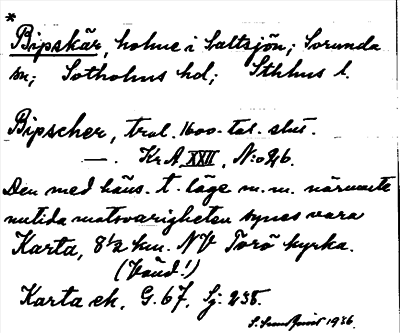 *
Bipskär, holme i Saltsjön; Sorunda
sn; Sotholms hd; Sthlms l.
Bipscher, trol. 1600-tal. slut.
— . Kr. A. XXII, N:o 26.
Den med häns. t. läge m. m. närmaste
nutida motsvarigheten synes vara
Karta, 8 1/2 km. NV Torö kyrka.
(Vänd!)
Karta ek. G. 67. Sj. 235.
1936.